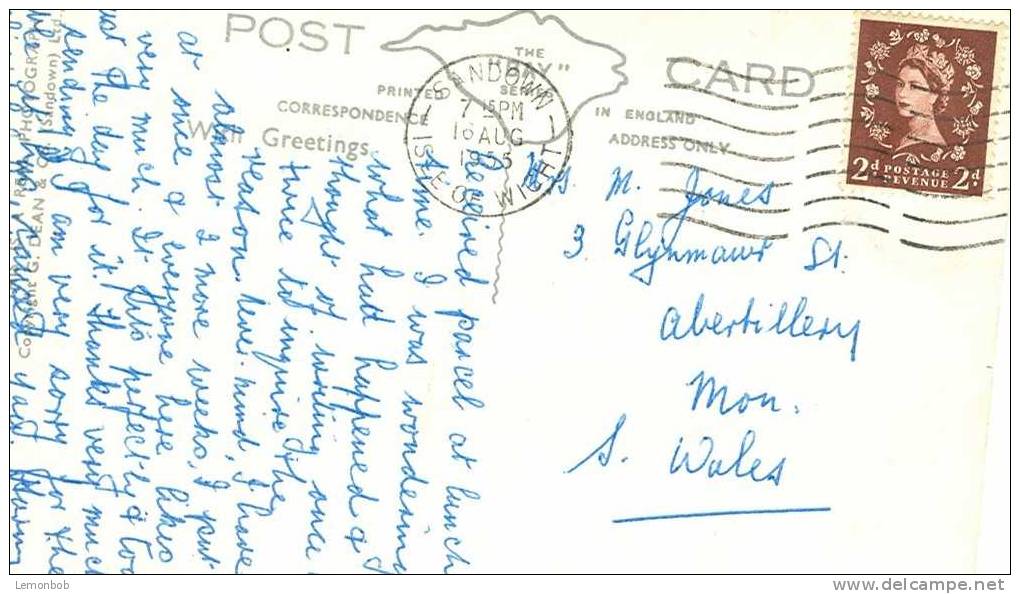 POST CARD
THE
"DAY"
SERIES
PRINTED IN ENGLAND
CORRESPONDENCE ADDRESS ONLY
With Greetings
SANDOWN
7 15PM
16 AUG
ISLE OF WIGHT
2d POSTAGE 2d
REVENUE
M. Jones
3 Glynmawr St.
Abertillery
Mon.
S. Wales
Received parcel at lunch
time. I was wondering
what had happened &
thought of writing once
time to inquire the
reason. Never mind, I have
almost 2 more weeks. I put
at once & everyone here likes
very much. It fits perfectly & too
just the day for it. Thanks very much
sending it. I am very sorry for the
Copyright G. DEAN & Co. (Sandown) Ltd.
Lemonbob
www.delcampe.net